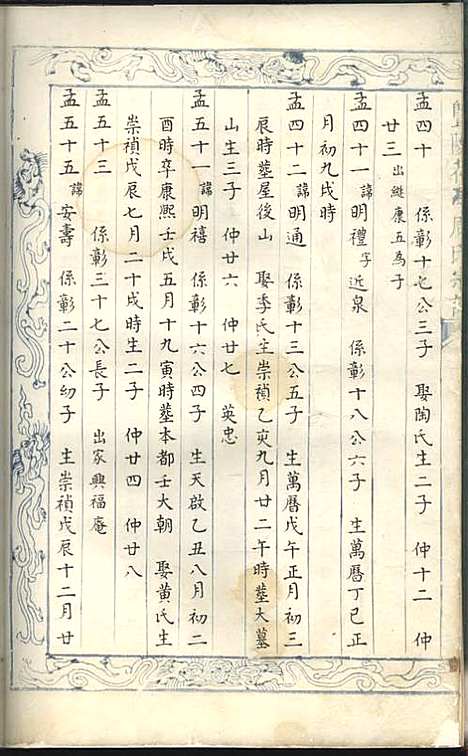 孟四十 係彰十七公三子 娶陶氏生二子 仲十二 仲
廿三 出繼康五為子
孟四十一 諱明禮 字近泉 係彰十八公六子 生萬曆丁巳正
月初九戌時
孟四十二 諱明通 係彰十三公五子 生萬曆戊午正月初三
辰時墓屋後山 娶季氏生崇禎乙亥九月廿二午時墓大墓
山生三子 仲廿六 仲廿七 英忠
孟五十一 諱明禧 係彰十六公四子 生天啟乙丑八月初二
酉時卒康熙壬戌五月十九寅時墓本都壬大朝 娶黃氏生
崇禎戊辰七月二十戌時生二子 仲廿四 仲廿八
孟五十三 係彰三十七公長子 出家興福庵
孟五十五 諱安壽 係彰二十公幼子 生崇禎戊辰十二月廿